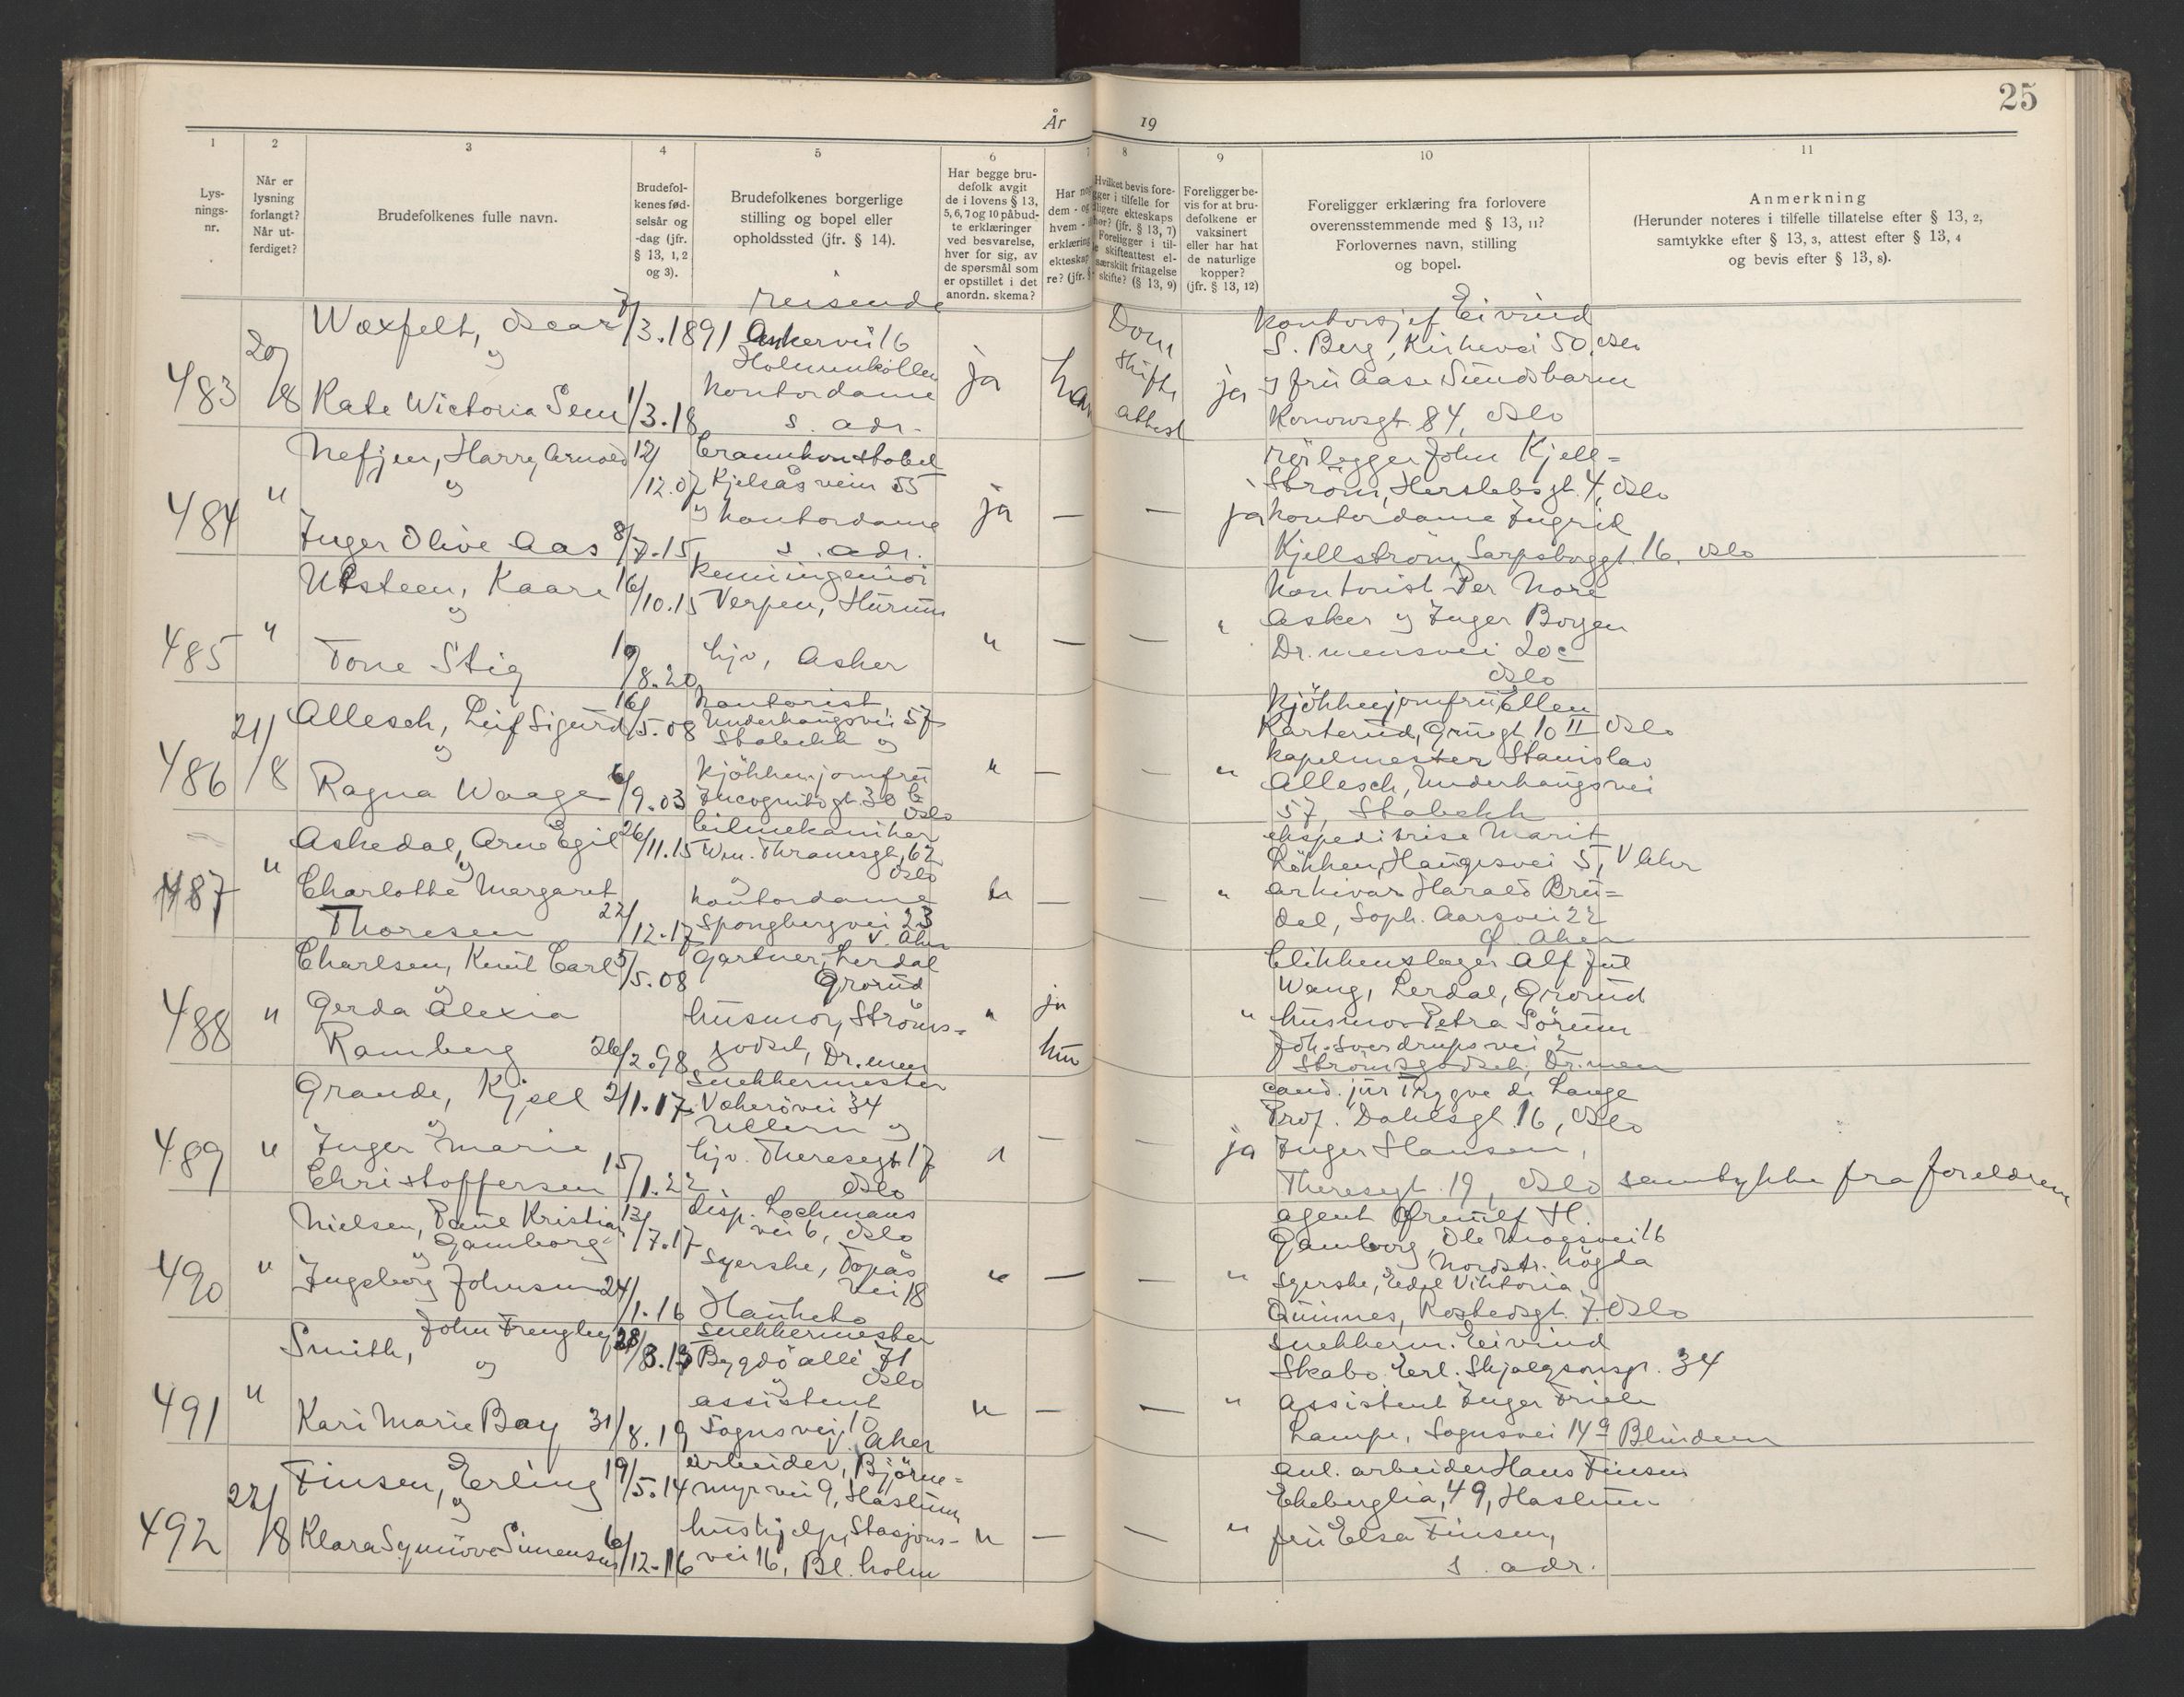 25
År 19
1
2
3
4
5
6
7
8
9
10
11
Lys-
nings-
nr.
Når er
lysning
forlangt?
Når ut-
ferdiget?
Brudefolkenes fulle navn.
Brudefol-
kenes fød-
selsår og
-dag (jfr.
§ 13, 1, 2
og 3).
Brudefolkenes borgerlige
stilling og bopel eller
opholdssted (jfr. § 14).
Har begge bru-
defolk avgit
de i lovens § 13,
5, 6, 7 og 10 påbud-
te erklæringer
ved besvarelse,
hver for sig, av
de spørsmål som
er opstillet i det
anordn. skema?
Har no
dem - og
hvem -
erklæring
ekteskap
re? (jfr. §
Hvilket bevis fore-
gger i tilfelle for
dligere ekteskaps
hør? (jfr. § 13, 7)
Foreligger i til-
le skifteattest el-
særskilt fritagelse
skifte? (§ 13, 9)
Foreligger be-
vis for at bru-
defolkene er
vaksinert
eller har hat
de naturlige
kopper?
(jfr. § 13, 12)
Foreligger erklæring fra forlovere
overensstemmende med § 13, 11?
Forlovernes navn, stilling
og bopel.
Anmerkning
(Herunder noteres i tilfelle tillatelse efter § 13, 2,
samtykke efter § 13, 3, attest efter § 13, 4
og bevis efter § 13, 8).
483
20/8
Woxfelt, Oscar
og
Kate Wictoria Sem
7/3.1891
1/3.18
reisende
Ankervei 16
Holmenkollen
kontordame
s. adr.
ja
han
Dom
skifte
attest
ja
kontorsjef Eivind
S. Berg, Kirkevei 50, Oslo
og fru Aase Sundbarm
Konowsgt. 84, Oslo
484
"
Nefjen, Harry Arnold
og
Inger Olive Aas
12/12.07
8/7.15
Gramkonstabel
Kjelsåsvein 55
og kontordame
s. adr.
ja
—
—
ja
rørlegger John Kjell=
ström, Herslebsgt. 4, Oslo
kontordame Ingrid
Kjellström, Sarpsborggt. 16, Oslo
485
"
Utsteen, Kaare
og
Tone Stig
16/10.15
19/8.20
kemiingeniør
Verpen, Hurum
hjv, Asker
"
—
—
"
Kontorist Per Nore
Asker og Inger Borgen
Dr.mensvei 20c
Oslo
486
21/8
Allesch, Leif Sigurd
og
Ragna Waage
16/5.08
6/9.03
kontorist,
Underhaugsvei 57
Stabekk og
kjökkenjomfru
Incognitogt. 30 b
Oslo
"
—
—
"
Kjökkenjomfru Ellen
Karterud, Grünsgt 10 II Oslo
kapelmester Stanislav
Allesch, Underhaugsvei
57, Stabekk
487
"
Askedal, Arne Egil
og
Charlotte Margaret
Thoresen
26/11.15
22/12.17
bilmekaniker
Wm. Thranesgt. 62
Oslo
og
kontordame
Spongbergvei 23
V. Aker
"
—
—
"
ekspeditrise Marit
Lökken, Haugesvei 5, V Aker
arkivar Harald Bru=
dal, Soph. Aarsvei 22
Ø. Aker
488
"
Charlsen, Knut Carl
og
Gerda Alexia
Ramberg
5/5.08
26/2.98
gartner, Lerdal
Grorud
husmor, Ströms=
godset, Dr.men
"
ja
hun
"
blikkenslager Alf Jul
Wang, Lerdal, Grorud
husmor Petra Sörum
Joh. Sverdrupsvei 2
Strömsgodset, Dr.men
489
"
Grande, Kjell
og
Inger Marie
Christoffersen
2/1.17
15/1.22
snekkermester
Vækerövei 34
Ullern og
hjv. Theresegt 17
Oslo
"
—
—
ja
cand. jur Trygve de Lange
Prof. Dahlsgt. 16, Oslo
Inger Hansen,
Theresegt. 19, Oslo
samtykke fra foreldrene
490
"
Nielsen, Paul Kristian
Gamborg
og
Ingeborg Johnsen
13/7.17
24/1.16
disp. Lochmans
vei 6, Oslo
syerske, Topås
vei 18
Hauketo
"
—
—
"
agent Ørnulf H.
Gamborg, Ole Mogsvei 16
Nordstr. högda
syerske, Edel Viktoria
Gumnes, Rostedsgt. 7. Oslo
491
"
Smith, John Frengley
og
Kari Marie Bay
28/8.13
31/8.19
snekkermester
Bygdö alle 71
og Oslo
assistent
Sognsvei 10
V. Aker
"
—
—
"
snekkerm. Eivind
Skabo Erl. Skjalgsonsgt. 34
assistent Inger Friele
Lampe, Sognsvei 14a Blindern
492
22/8
Finsen, Erling
og
Klara Synnöve Simensen
19/5.14
6/12.16
arbeider, Björne=
myrvei 9, Haslum
hushjelp, Stasjons-
vei 16, Bl.holm
"
—
—
"
anl. arbeider Hans Finsen
Ekeberglia, 49, Haslum
fru Elsa Finsen,
s. adr.